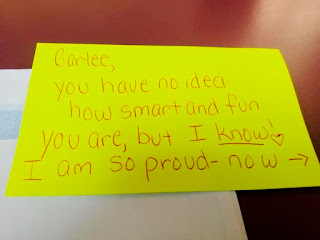 Carlee,
you have no idea
how smart and fun
you are, but I know! ♡
I am so proud - now →